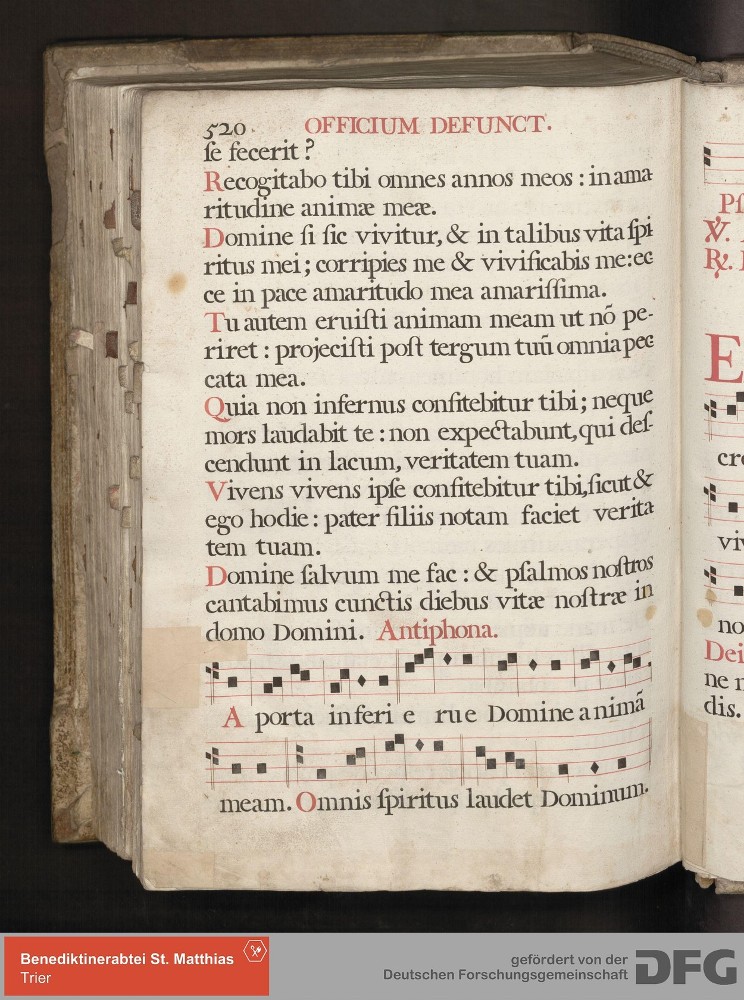 520. OFFICIUM DEFUNCT.
ſe fecerit?
Recogitabo tibi omnes annos meos : in ama
ritudine animæ meæ.
Domine ſi ſic vivitur, & in talibus vita ſpi
ritus mei ; corripies me & vivificabis me: ec
ce in pace amaritudo mea amariſſima.
Tu autem eruiſti animam meam ut nõ pe-
riret : projeciſti poſt tergum tuũ omnia pec
cata mea.
Quia non infernus confitebitur tibi ; neque
mors laudabit te : non expectabunt, qui deſ-
cendunt in lacum, veritatem tuam.
Vivens vivens ipſe confitebitur tibi, ſicut &
ego hodie : pater filiis notam faciet verita
tem tuam.
Domine ſalvum me fac : & pſalmos noſtros
cantabimus cunctis diebus vitæ noſtræ in
domo Domini. Antiphona.
A porta inferi e rue Domine animã
meam. Omnis ſpiritus laudet Dominum.
Pſ
℣.
℟.
E
cre
viv
no
Dei
ne
dis.
Benediktinerabtei St. Matthias
Trier
gefördert von der
Deutschen Forschungsgemeinschaft
DFG